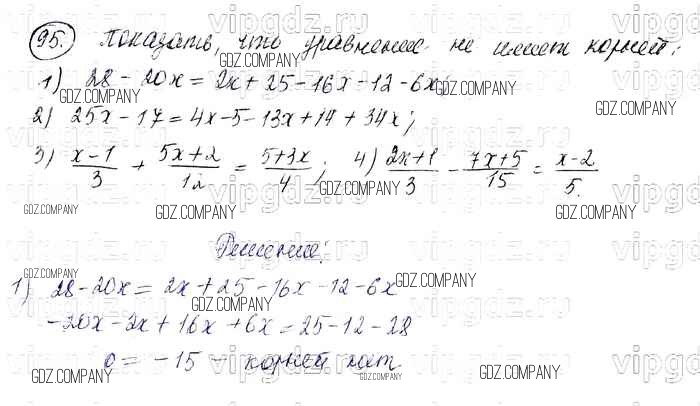 95. Показать, что уравнение не имеет корней:
1) 28 - 20x = 2x + 25 - 16x - 12 - 6x;
2) 25x - 17 = 4x - 5 - 13x + 14 + 34x;
3) (x-1)/3 + (5x+2)/12 = (5+3x)/4; 4) (2x+1)/3 - (7x+5)/15 = (x-2)/5.
Решение:
1) 28 - 20x = 2x + 25 - 16x - 12 - 6x
-20x - 2x + 16x + 6x = 25 - 12 - 28
0 = -15 - корней нет
vipgdz.ru
GDZ.COMPANY